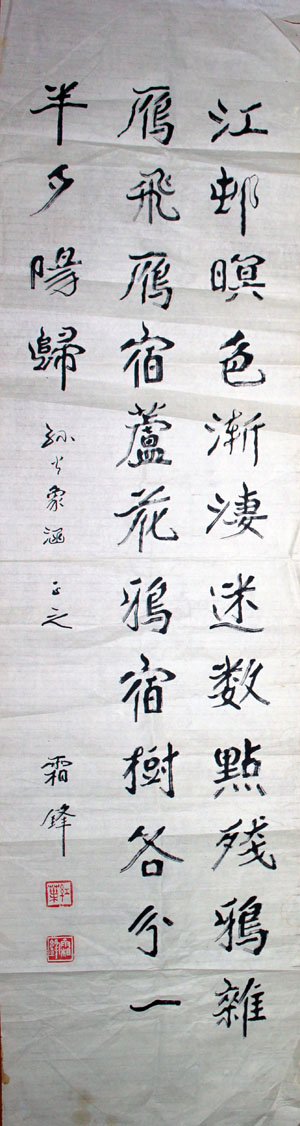 江邨暝色漸淒迷数點殘鴉雜
鴈飛鴈宿蘆花鴉宿樹各分一
半夕陽歸
孫象涵 正之
霜鋒